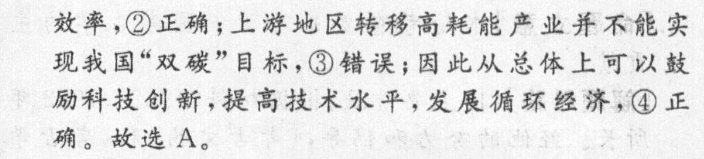 效率,②正确;上游地区转移高耗能产业并不能实
现我国“双碳”目标,③错误;因此从总体上可以鼓
励科技创新,提高技术水平,发展循环经济,④正
确。故选 A。